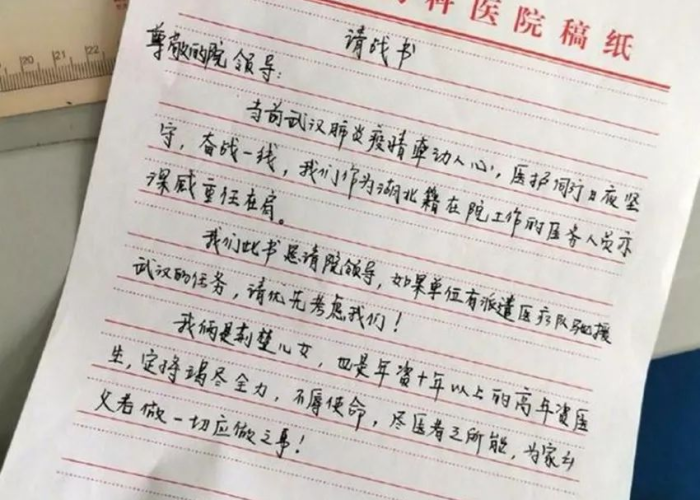 科医院稿纸
请战书
尊敬的院领导：
当前武汉肺炎疫情牵动人心，医护同行日夜坚
守，奋战一线，我们作为湖北籍在院工作的医务人员亦
深感重任在肩。
我们此书恳请院领导，如果单位有派遣医疗队驰援
武汉的任务，请优先考虑我们！
我俩是荆楚儿女，也是年资十年以上的高年资医
生，定将竭尽全力，不辱使命，尽医者之所能，为家乡
父老做一切应做之事！
22
21
20
19